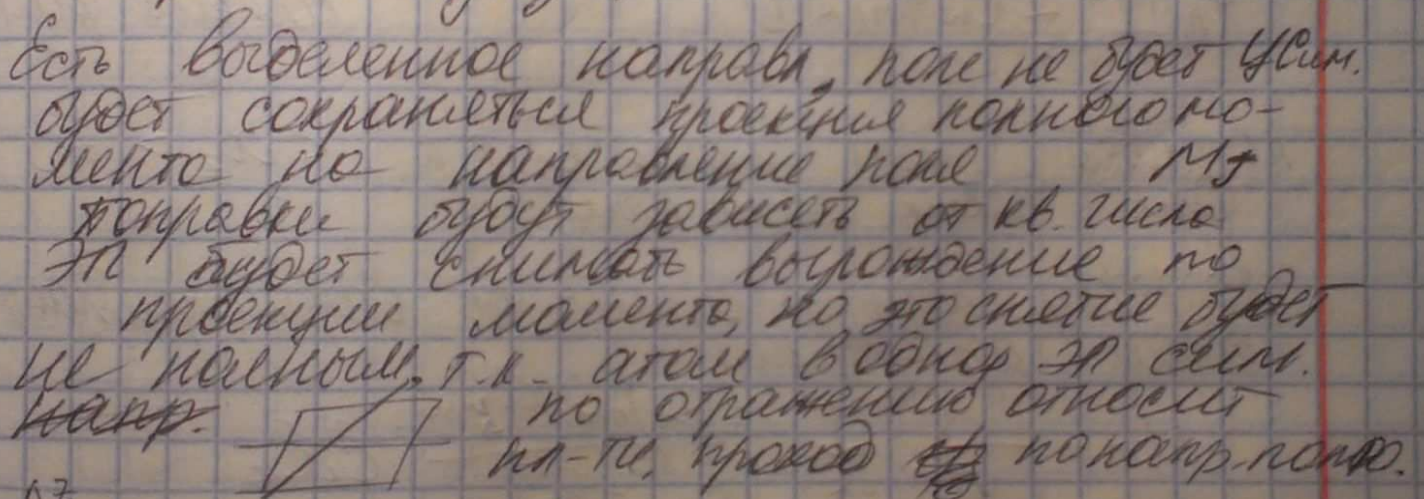 Есть выделенное направл, поле не будет ЦСим.
будет сохраняться проекция полного мо-
мента на направление поля MJ
поправки будут зависеть от кв. числа
ЭП будет снимать вырождение по
проекции момента, но это снятие будет
не полным, т.к. атом в однор ЭП симм.
напр. по отражению относит
пл-ти, проход по напр. поля.